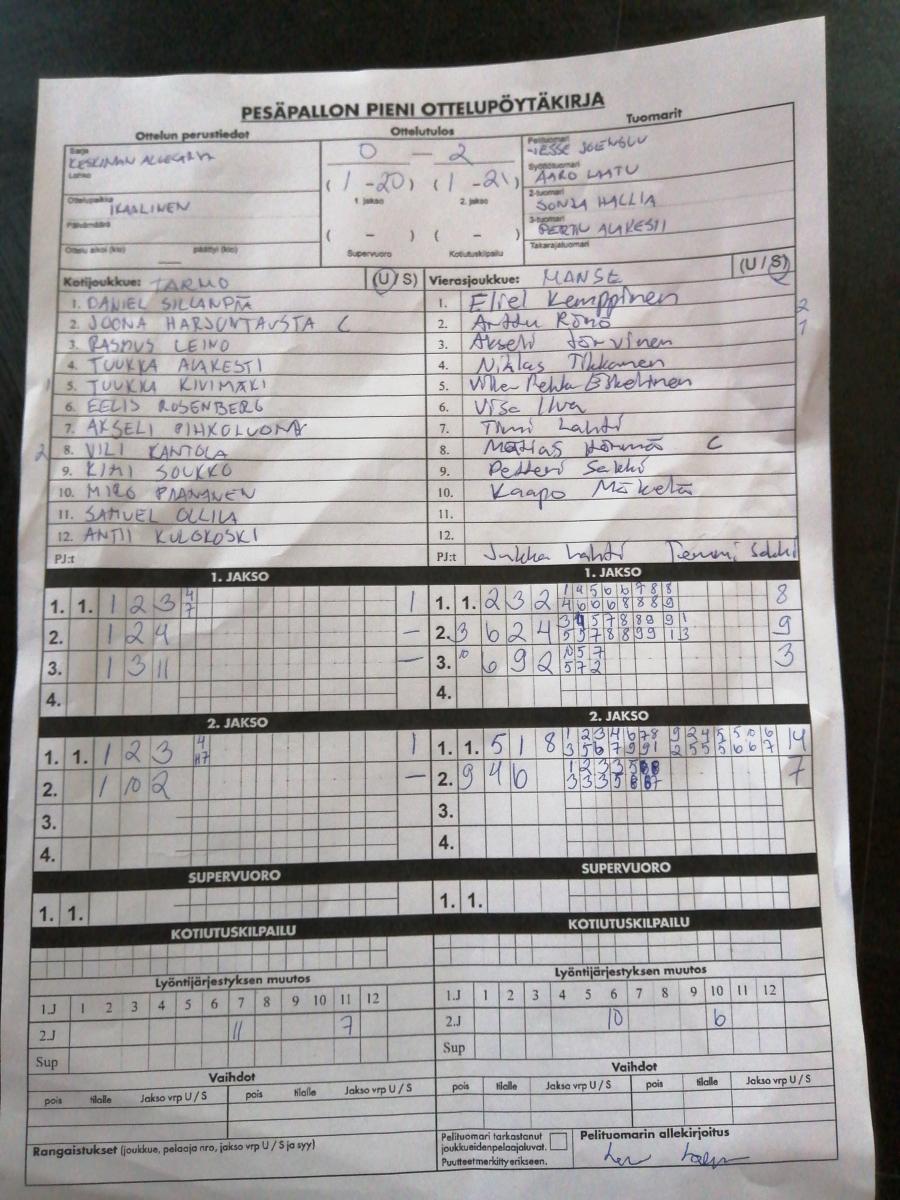 PESÄPALLON PIENI OTTELUPÖYTÄKIRJA
Ottelun perustiedot
Ottelutulos
Tuomarit
Sarja
Lohko
Ottelupaikka
IKAALINEN
Päivämäärä
Ottelu alkoi (klo) päättyi (klo)
0 — 2
(1 - 20) (1 - 21)
1. jakso 2. jakso
( - ) ( - )
Supervuoro Kotiutuskilpailu
Pelituomari
Syöttötuomari
AARO LAATU
2-tuomari
SONJA HALLIA
3-tuomari
PERTTU ALAKESTI
Takarajatuomari
Kotijoukkue: TARMO (U/S)
1. DANIEL SILLANPÄÄ
2. JOONA HARJUNTAUSTA C
3. RASMUS LEINO
4. TUUKKA ALAKESTI
1 5. TUUKKA KIVIMÄKI
6. EELIS ROSENBERG
7. AKSELI PIHKOLUOMA
2 8. VILI KANTOLA
9. KIMI SOUKKO
10. MIRO PAANANEN
11. SAMUEL OLLILA
12. ANTII KULOKOSKI
PJ:t
Vierasjoukkue: MANSE (U/S)
1. Eliel Kemppinen 2
2. Arttu Rönö 1
3. Akseli Järvinen
4. Niklas Tikkanen
5. Pekka Eskelinen
6. Visa Ilva
7. Timi Lahti
8. Matias C
9. Petteri Sakki
10. Kaapo Mäkelä
11.
12.
PJ:t Jukka Lahti Sakki
1. JAKSO
1. 1. 1 2 3 4 7 1
2. 1 2 4 —
3. 1 3 11 —
4.
1. JAKSO
1. 1. 2 3 2 8
2. 3 6 2 4 9
3. 10 6 9 2 3
4.
2. JAKSO
1. 1. 1 2 3 4 1
2. 1 10 2 —
3.
4.
2. JAKSO
1. 1. 5 1 8 14
2. 9 4 6 7
3.
4.
SUPERVUORO
1. 1.
SUPERVUORO
1. 1.
KOTIUTUSKILPAILU
KOTIUTUSKILPAILU
Lyöntijärjestyksen muutos
1.J 1 2 3 4 5 6 7 8 9 10 11 12
2.J 11 7
Sup
Lyöntijärjestyksen muutos
1.J 1 2 3 4 5 6 7 8 9 10 11 12
2.J 10 6
Sup
Vaihdot
pois tilalle Jakso vrp U / S pois tilalle Jakso vrp U / S
Vaihdot
pois tilalle Jakso vrp U / S pois tilalle Jakso vrp U / S
Rangaistukset (joukkue, pelaaja nro, jakso vrp U / S ja syy)
Pelituomari tarkastanut
joukkueidenpelaajaluvat.
Puutteetmerkittyerikseen.
Pelituomarin allekirjoitus